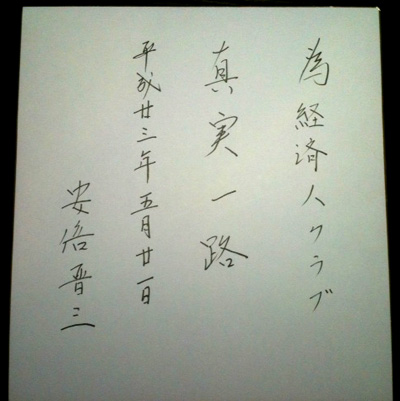 為経済人クラブ
真実一路
平成廿三年五月廿一日
安倍晋三